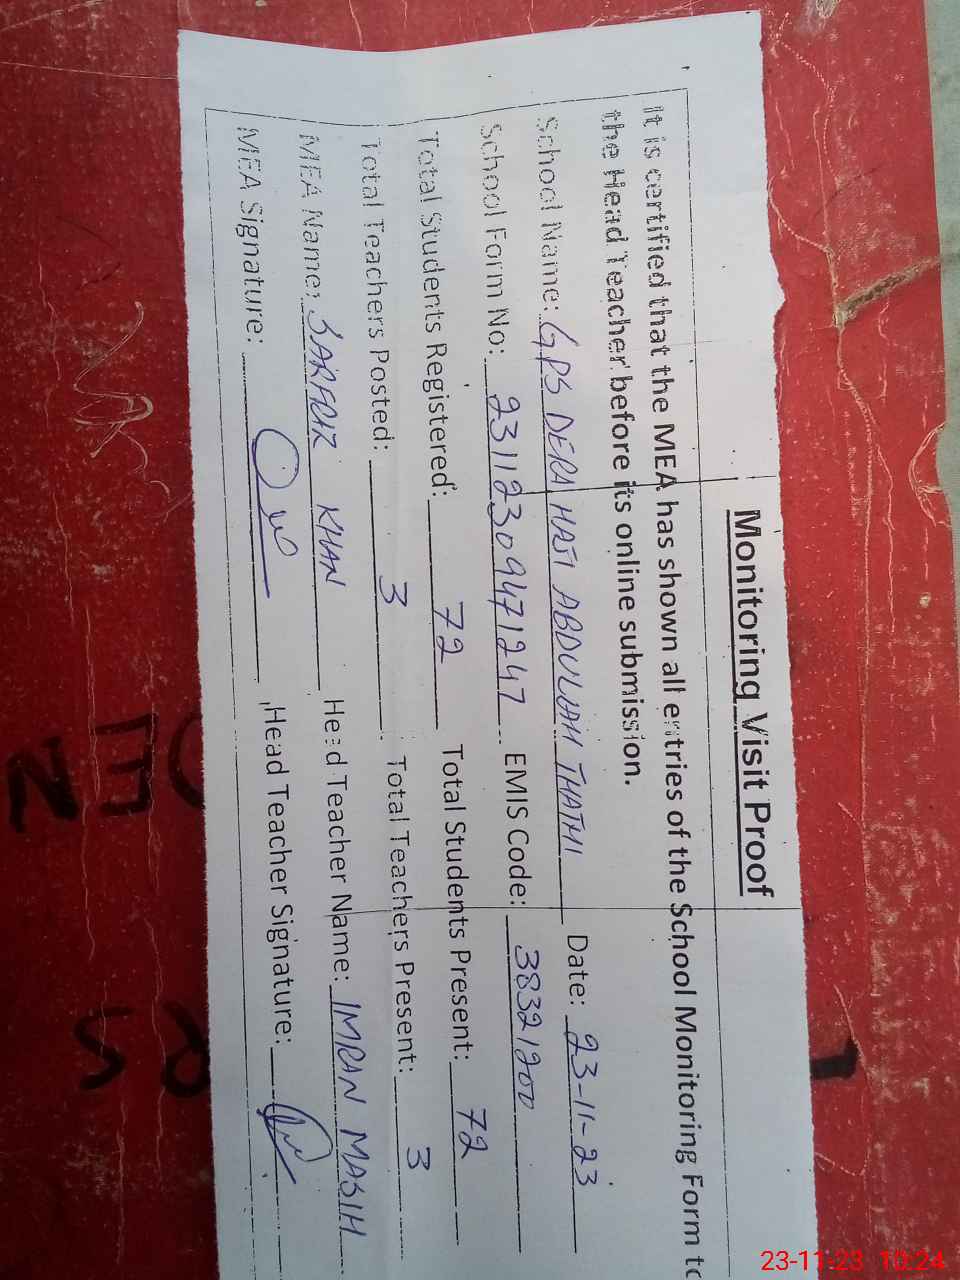 Monitoring Visit Proof
It is certified that the MEA has shown all entries of the School Monitoring Form to
the Head Teacher before its online submission.
School Name: GPS DERA HAJI ABDULLAH THATHI Date: 23-11-23
School Form No: 23112309471247 EMIS Code: 38321200
Total Students Registered: 72 Total Students Present: 72
Total Teachers Posted: 3 Total Teachers Present: 3
MEA Name: SARFRAZ KHAN Head Teacher Name: IMRAN MASIH
MEA Signature: Head Teacher Signature:
23-11-23 10:24